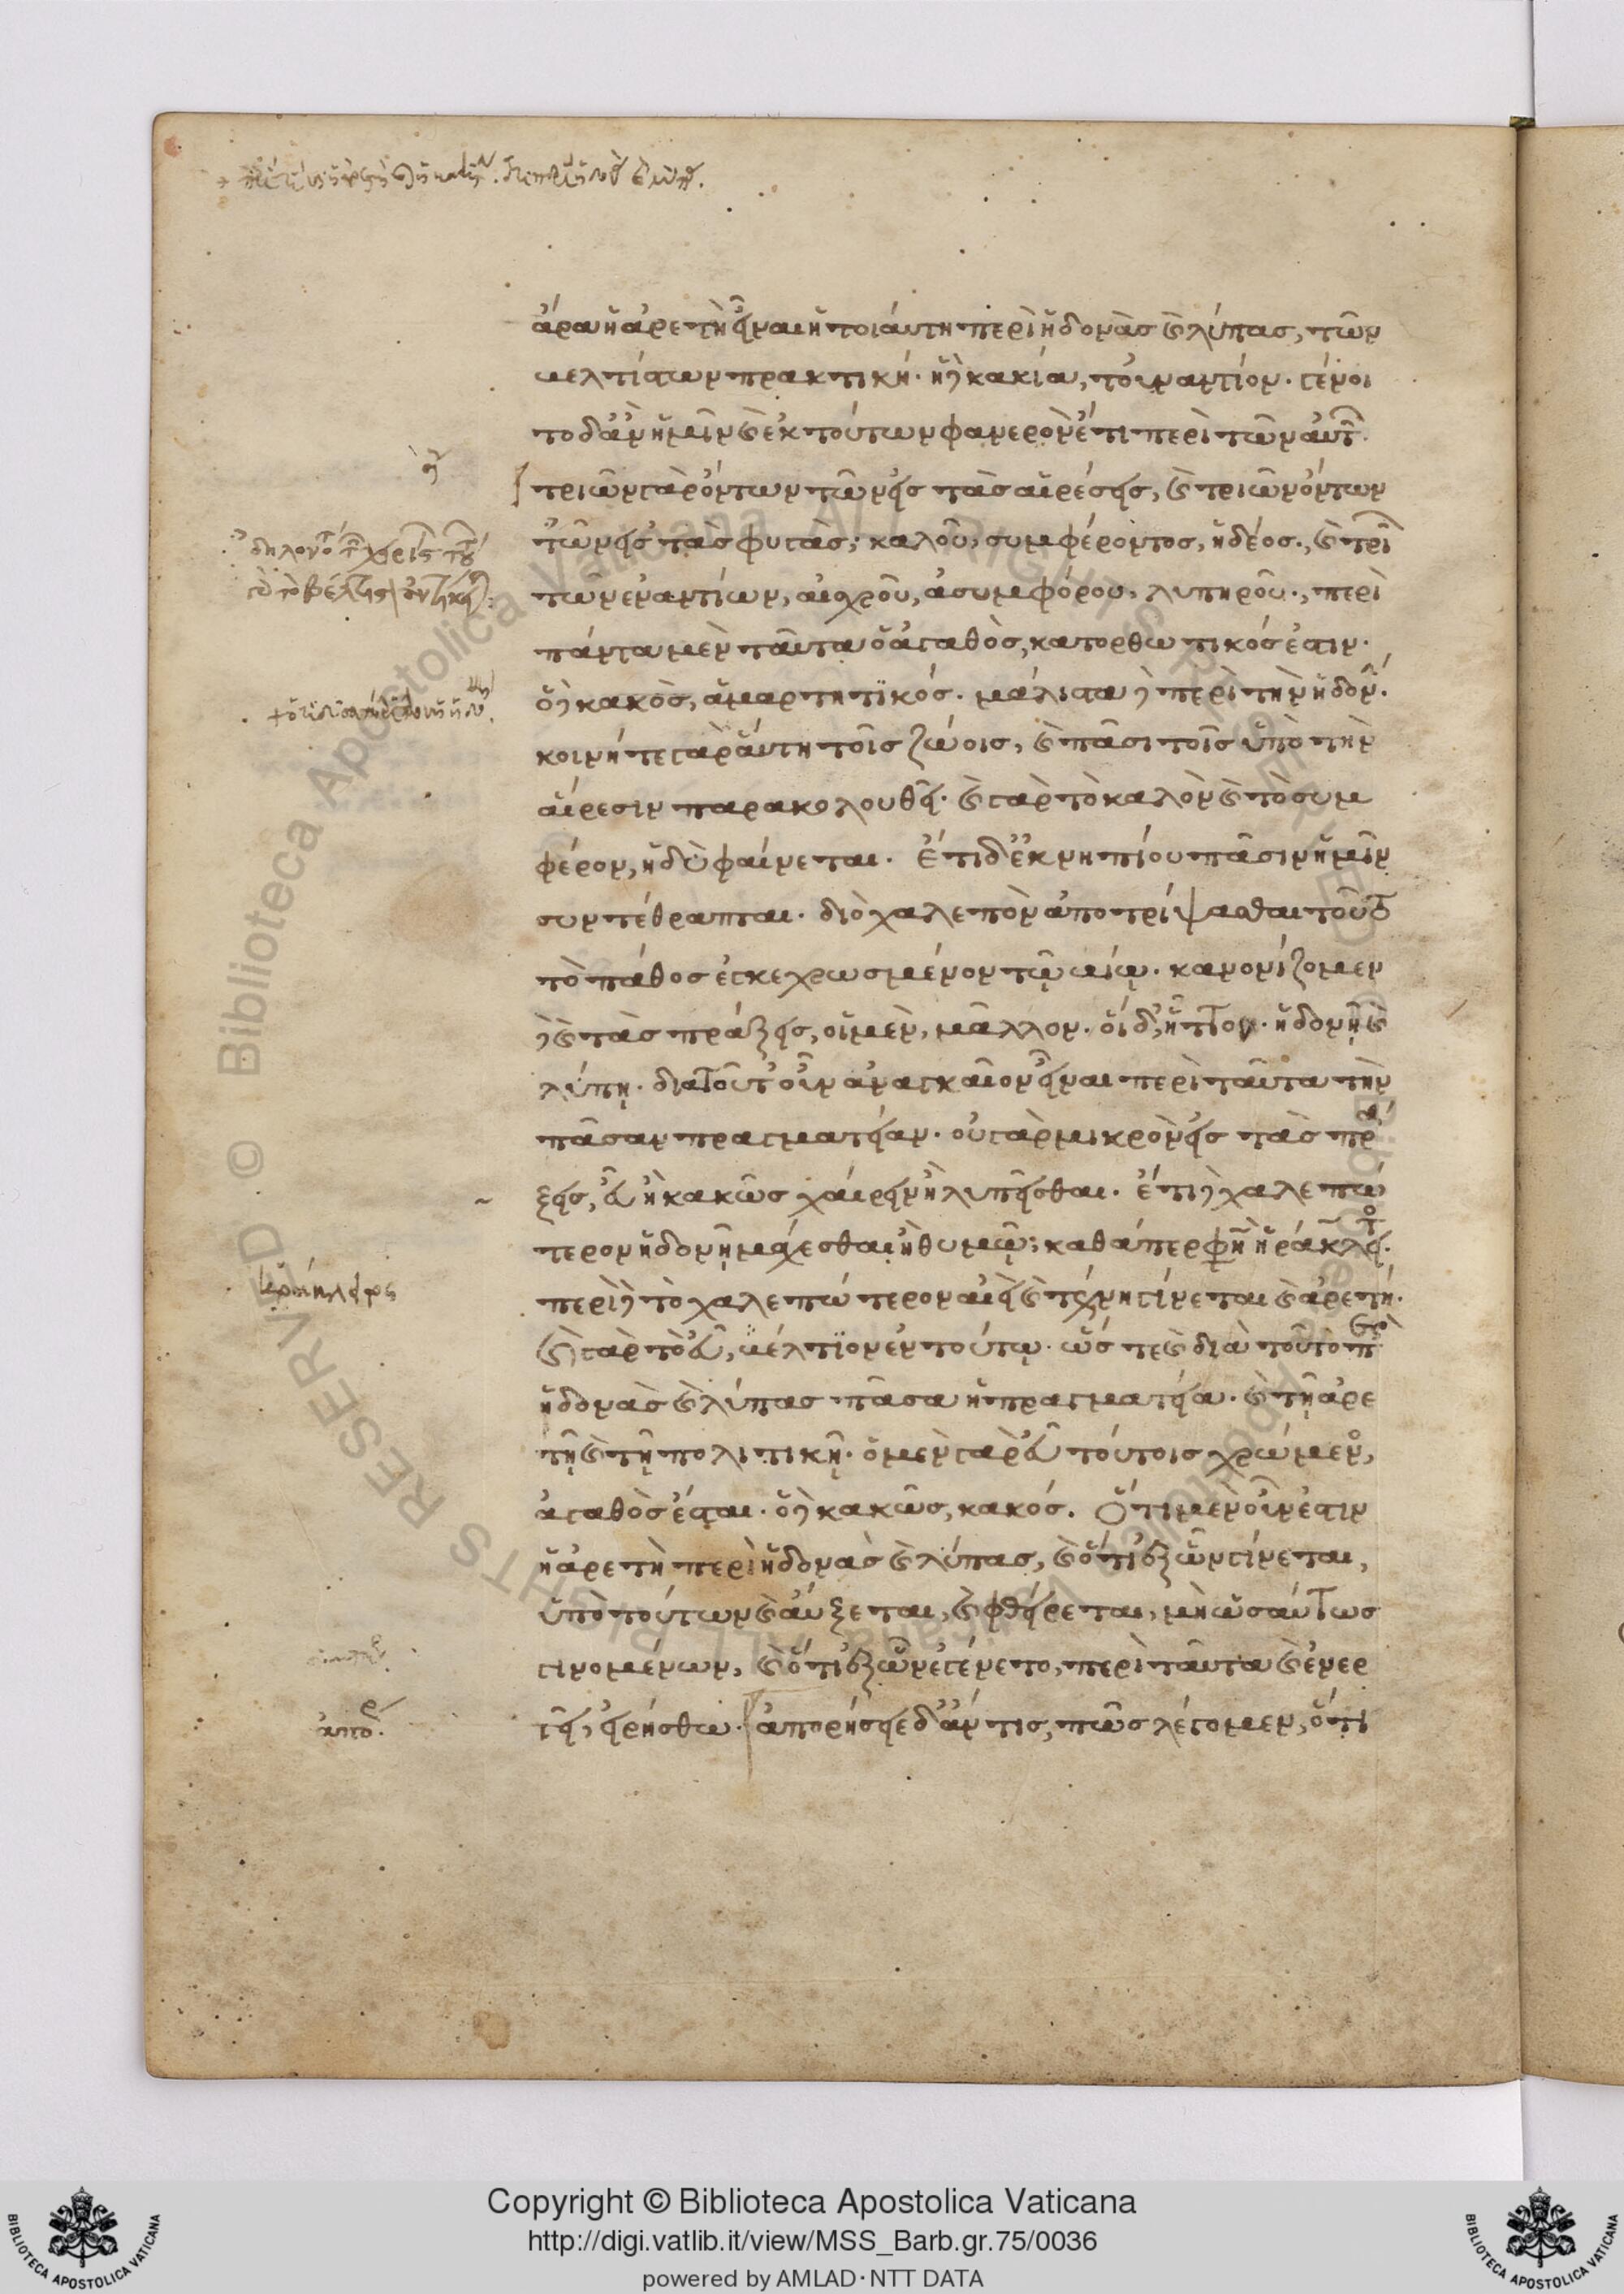 ἄρα ἡ ἀρετὴ εἶναι ἡ τοιαύτη περὶ ἡδονὰς καὶ λύπας, τῶν
βελτίστων πρακτική. ἡ δὲ κακία, τοὐναντίον. γένοι
το δ' ἂν ἡμῖν καὶ ἐκ τούτων φανερὸν ἔτι περὶ τῶν αὐτῶν.
τριῶν γὰρ ὄντων τῶν εἰς τὰς αἱρέσεις, καὶ τριῶν ὄντων
τῶν εἰς τὰς φυγάς· καλοῦ, συμφέροντος, ἡδέος, καὶ τριῶν
τῶν ἐναντίων, αἰσχροῦ, ἀσυμφόρου, λυπηροῦ, περὶ
πάντα μὲν ταῦτα ὁ ἀγαθὸς, κατορθωτικός ἐστιν.
ὁ δὲ κακὸς, ἁμαρτητικός. μάλιστα δὲ περὶ τὴν ἡδονήν.
κοινή τε γὰρ αὕτη τοῖς ζώοις, καὶ πᾶσι τοῖς ὑπὸ τὴν
αἵρεσιν παρακολουθεῖ. καὶ γὰρ τὸ καλὸν καὶ τὸ συμ
φέρον, ἡδὺ φαίνεται. ἔτι δ' ἐκ νηπίου πᾶσιν ἡμῖν
συντέθραπται. διὸ χαλεπὸν ἀποτρίψασθαι τοῦτο
τὸ πάθος ἐγκεχρωσμένον τῷ βίῳ. κανονίζομεν
δὲ καὶ τὰς πράξεις, οἱ μὲν, μᾶλλον. οἱ δ', ἧττον. ἡδονῇ καὶ
λύπῃ. διὰ τοῦτ' οὖν ἀναγκαῖον εἶναι περὶ ταῦτα τὴν
πᾶσαν πραγματείαν. οὐ γὰρ μικρὸν εἰς τὰς πρά
ξεις, εὖ ἢ κακῶς χαίρειν ἢ λυπεῖσθαι. ἔτι δὲ χαλεπώ
τερον ἡδονῇ μάχεσθαι ἢ θυμῷ· καθάπερ φησὶν Ἡράκλειτος.
περὶ δὲ τὸ χαλεπώτερον αἰεὶ καὶ τέχνη γίνεται καὶ ἀρετή.
καὶ γὰρ τὸ εὖ, βέλτιον ἐν τούτῳ. ὥστε καὶ διὰ τοῦτο περὶ
ἡδονὰς καὶ λύπας πᾶσα ἡ πραγματεία. καὶ τῇ ἀρε
τῇ καὶ τῇ πολιτικῇ. ὁ μὲν γὰρ εὖ τούτοις χρώμενος,
ἀγαθὸς ἔσται. ὁ δὲ κακῶς, κακός. Ὅτι μὲν οὖν ἐστιν
ἡ ἀρετὴ περὶ ἡδονὰς καὶ λύπας, καὶ ὅτι ἐξ ὧν γίνεται,
ὑπὸ τούτων καὶ αὔξεται, καὶ φθείρεται, μὴ ὡσαύτως
γινομένων, καὶ ὅτι ἐξ ὧν ἐγένετο, περὶ ταῦτα καὶ ἐνερ
γεῖ, εἰρήσθω. ἀπορήσειε δ' ἄν τις, πῶς λέγομεν, ὅτι
ἀπορ
© Biblioteca Apostolica Vaticana ALL RIGHTS RESERVED
Copyright © Biblioteca Apostolica Vaticana
http://digi.vatlib.it/view/MSS_Barb.gr.75/0036
powered by AMLAD·NTT DATA
BIBLIOTECA APOSTOLICA VATICANA
BIBLIOTECA APOSTOLICA VATICANA